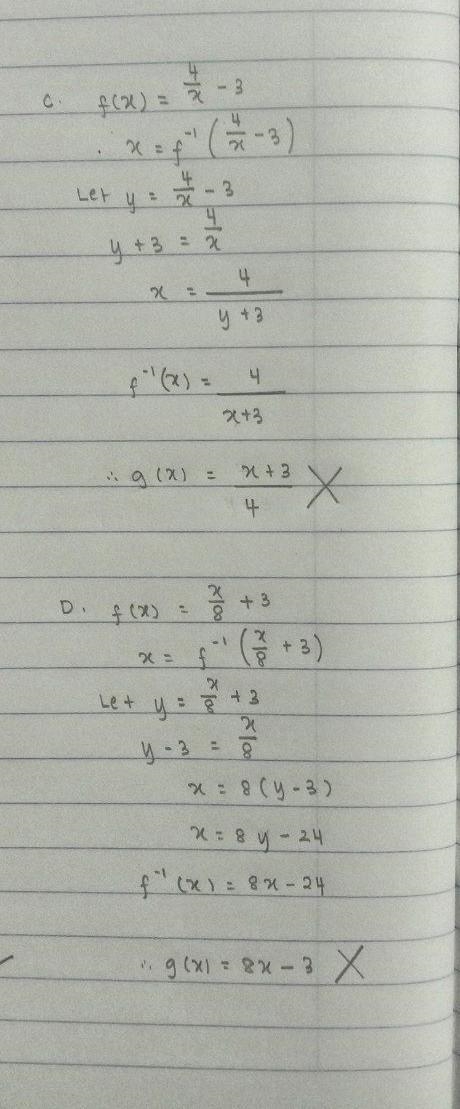 C. f(x) = 4/x - 3
. x = f⁻¹ (4/x - 3)
Let y = 4/x - 3
y + 3 = 4/x
x = 4/(y + 3)
f⁻¹(x) = 4/(x+3)
∴ g(x) = (x+3)/4 ✗
D. f(x) = x/8 + 3
x = f⁻¹ (x/8 + 3)
Let y = x/8 + 3
y - 3 = x/8
x = 8(y - 3)
x = 8y - 24
f⁻¹(x) = 8x - 24
∴ g(x) = 8x - 3 ✗